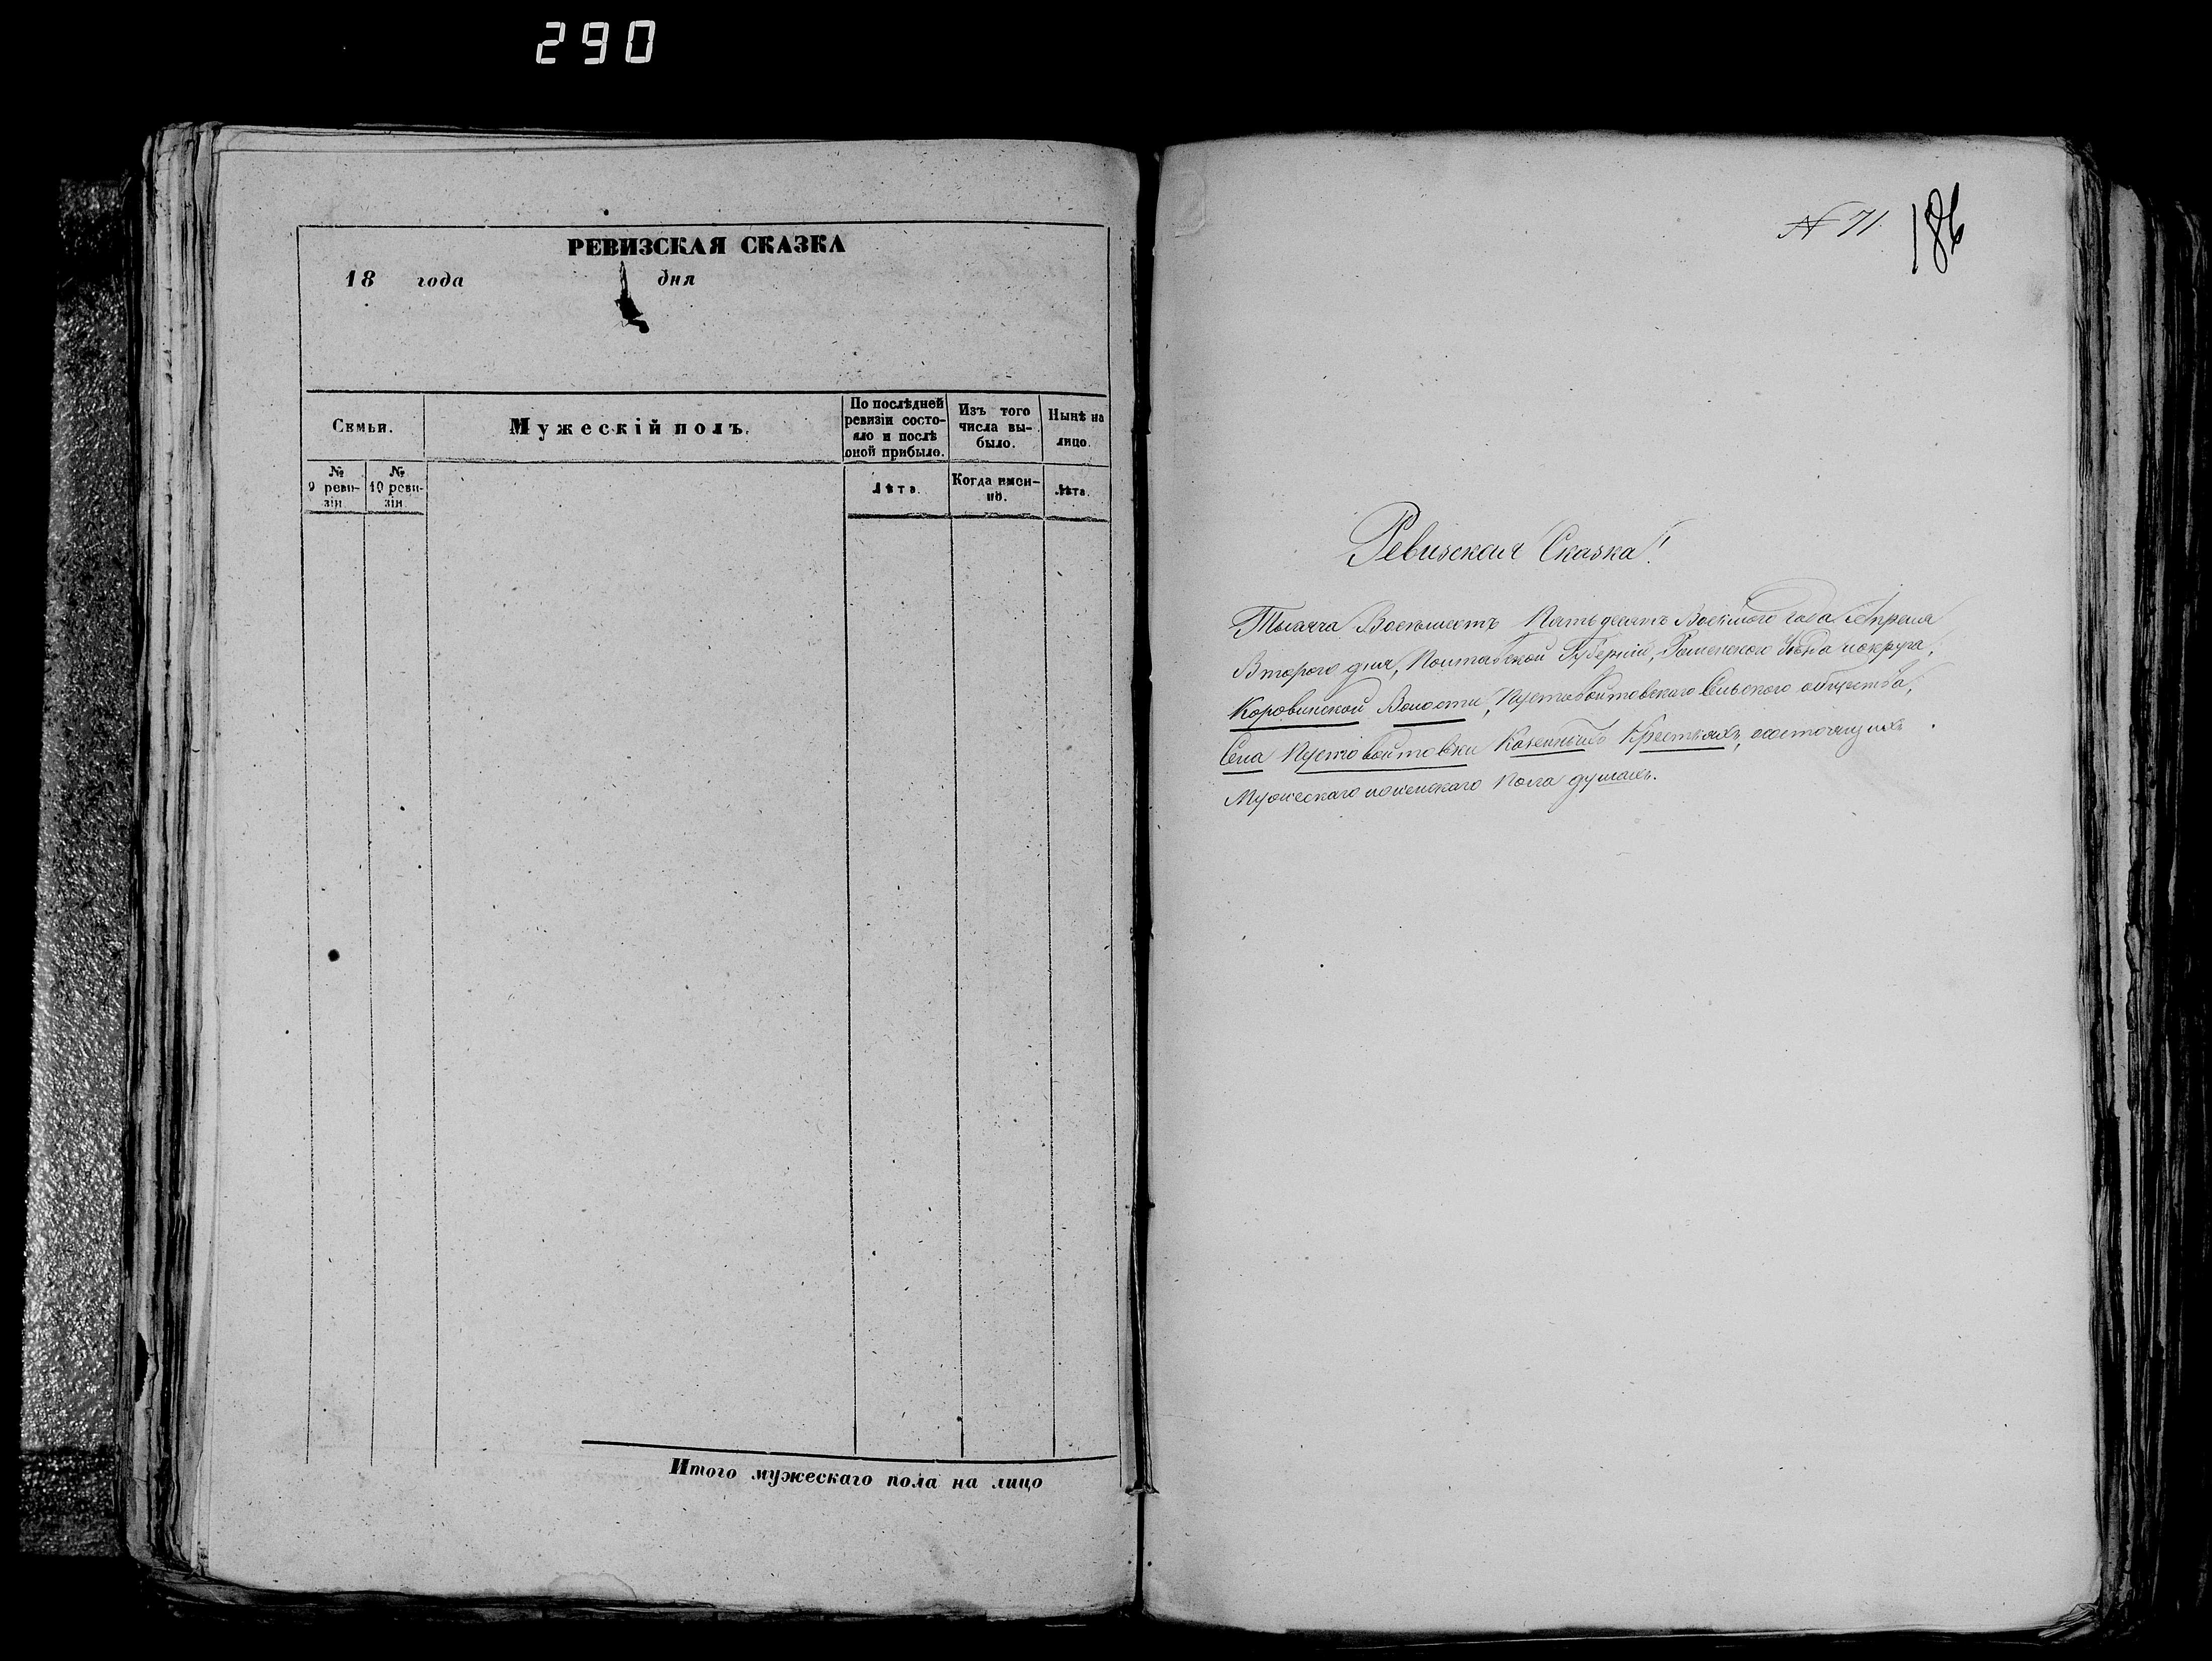 290
РЕВИЗСКАЯ СКАЗКА
18 года дня
Семьи.
Мужескій полъ.
По послѣдней ревизіи состояло и послѣ оной прибыло.
Изъ того числа выбыло.
Нынѣ на лицо.
№ 9 ревизіи
№ 10 ревизіи
Лѣта.
Когда именно.
Лѣта.
Итого мужескаго пола на лицо
№ 71.
186
Ревизская Сказка!
Тысяча Восемьсотъ Пятьдесятъ Восьмого года Апреля
Второго дня, Полтавской Губерніи, Роменского Уѣзда и округа,
Коровинской Волости, Пустовойтовского Сельского общества,
Села Пустовойтовки Казенныхъ Крестьянъ, состоящихъ
Мужескаго и женскаго Пола душахъ.